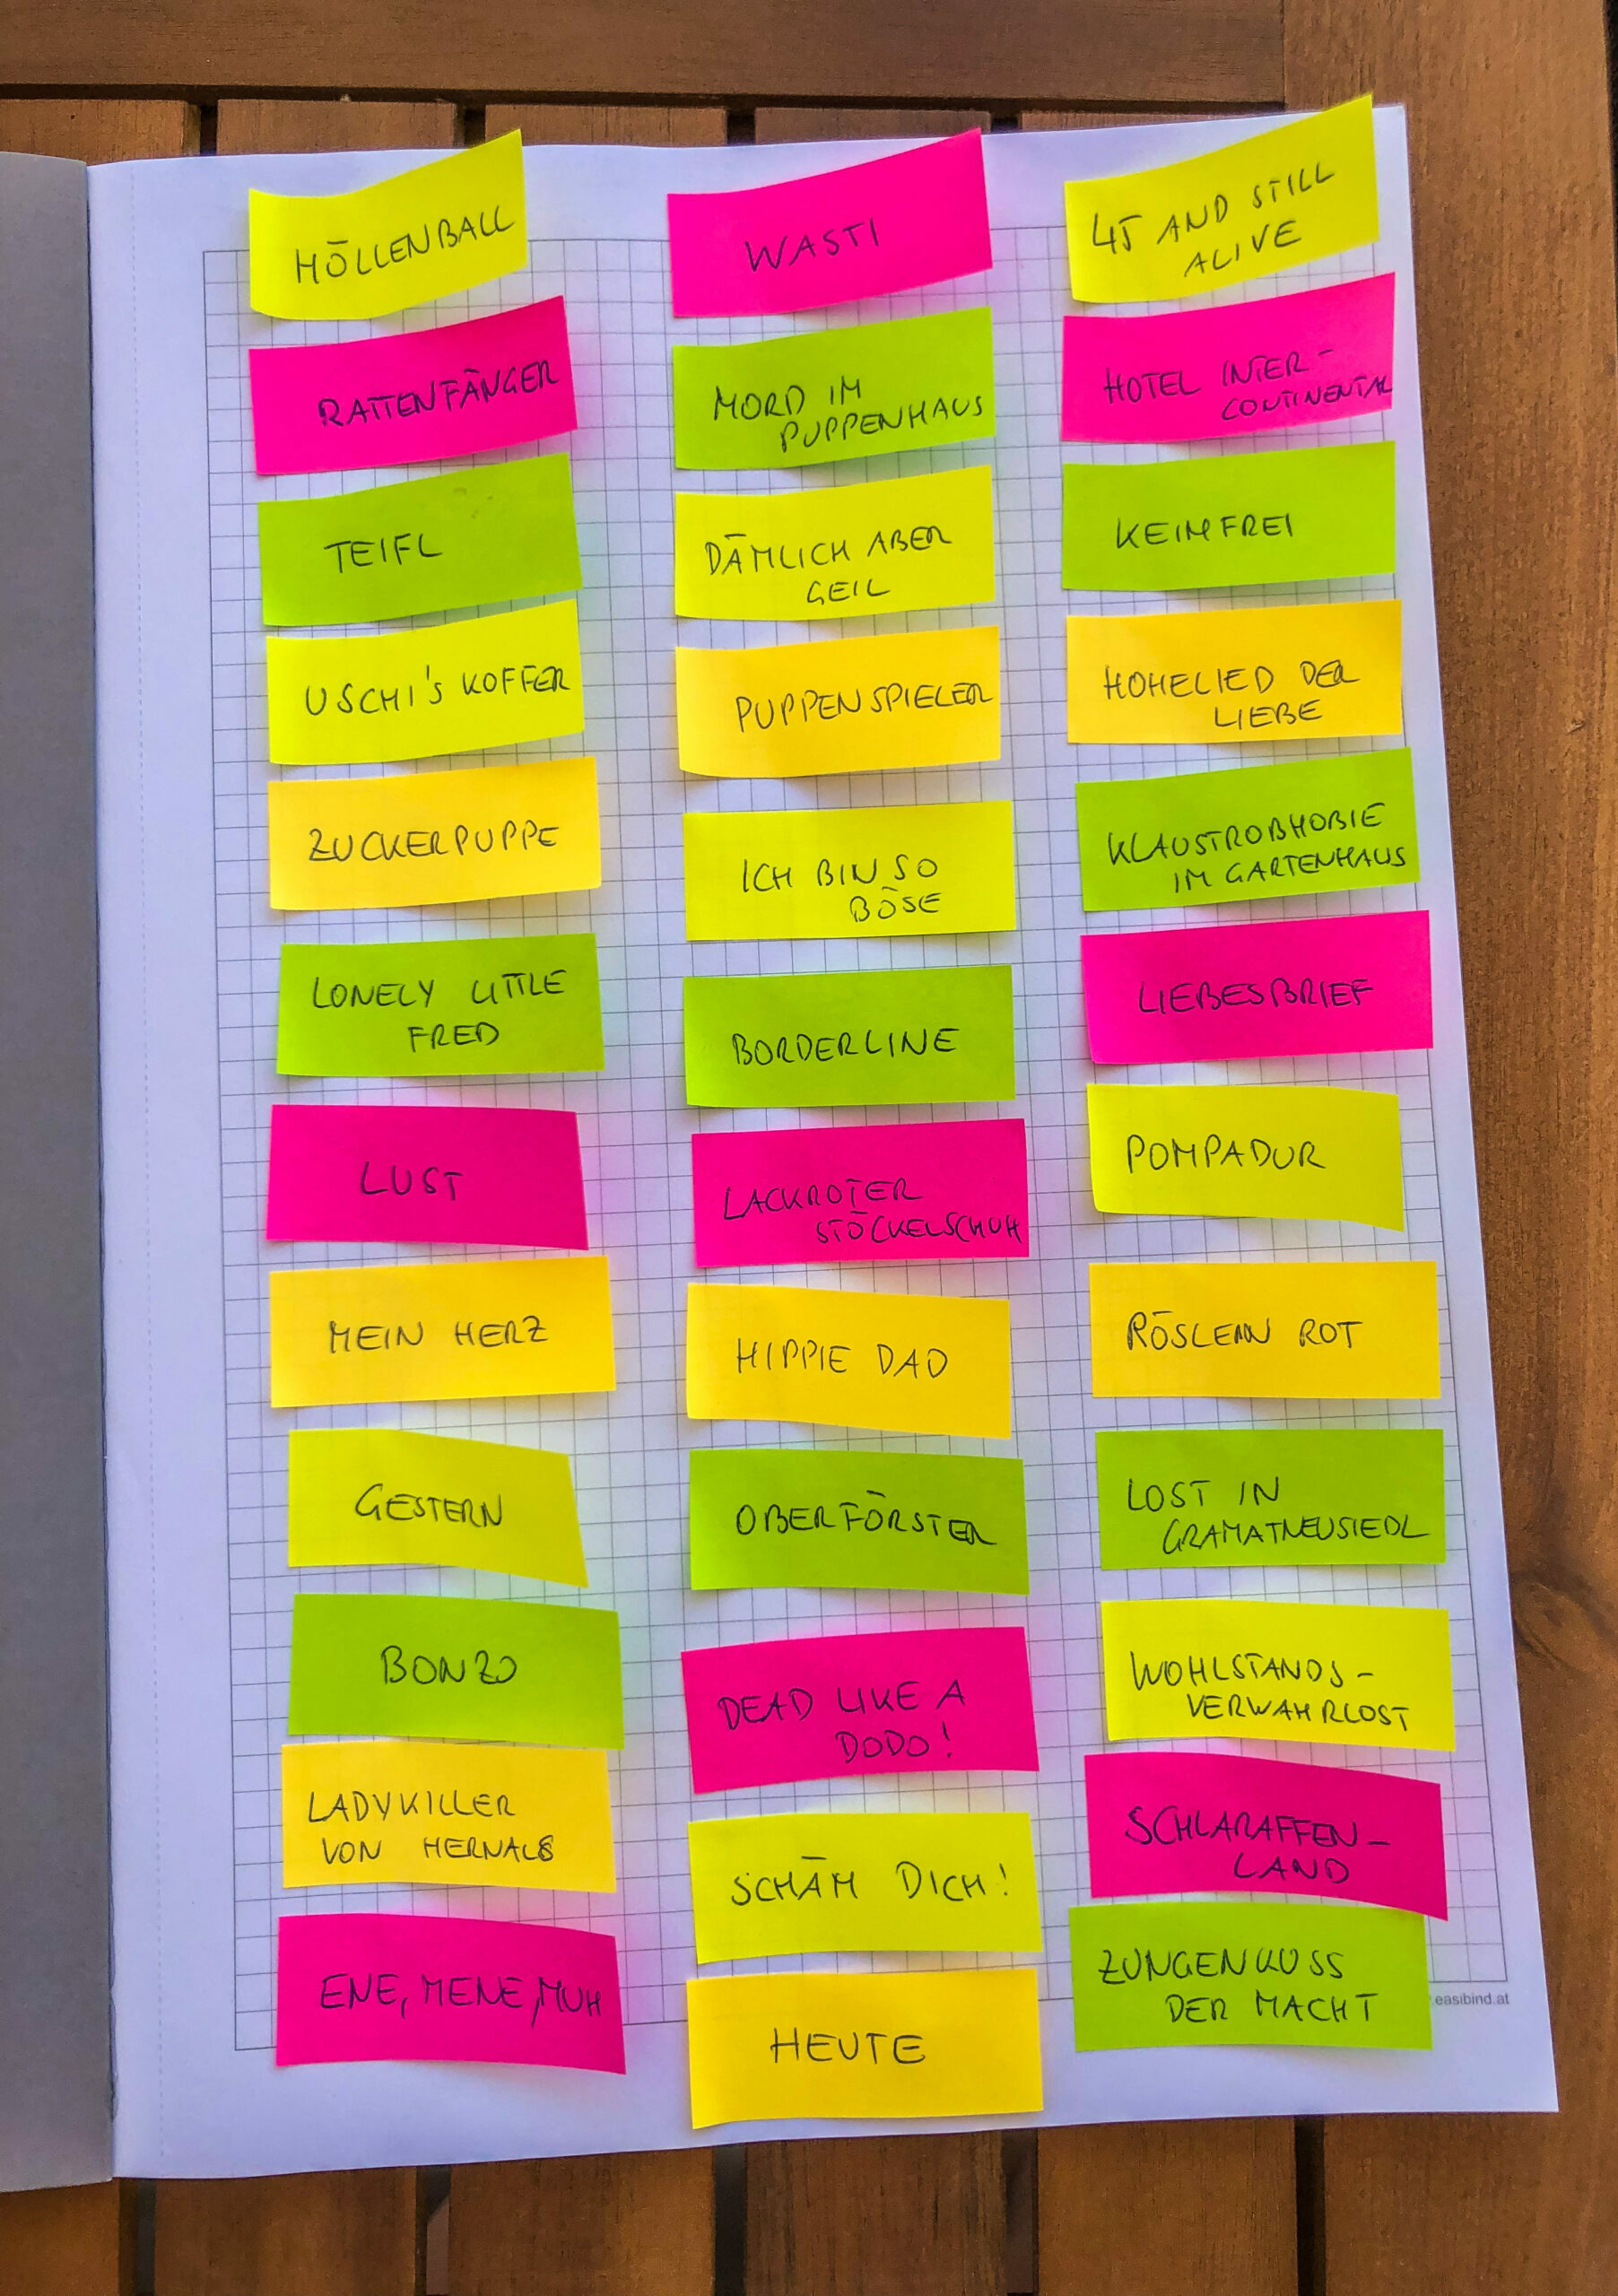 HÖLLENBALL
RATTENFÄNGER
TEIFL
USCHI'S KOFFER
ZUCKERPUPPE
LONELY LITTLE
FRED
LUST
MEIN HERZ
GESTERN
BONZO
LADYKILLER
VON HERNALS
ENE, MENE, MUH
WASTI
MORD IM
PUPPENHAUS
DÄMLICH ABER
GEIL
PUPPENSPIELER
ICH BIN SO
BÖSE
BORDERLINE
LACKROTER
STÖCKELSCHUH
HIPPIE DAD
OBERFÖRSTER
DEAD LIKE A
DODO!
SCHÄM DICH!
HEUTE
45 AND STILL
ALIVE
HOTEL INTER-
CONTINENTAL
KEIMFREI
HOHELIED DER
LIEBE
KLAUSTROBHOBIE
IM GARTENHAUS
LIEBESBRIEF
POMPADUR
RÖSLEIN ROT
LOST IN
GRAMATNEUSIEDL
WOHLSTANDS-
VERWAHRLOST
SCHLARAFFEN-
LAND
ZUNGENKUSS
DER MACHT
.easibind.at